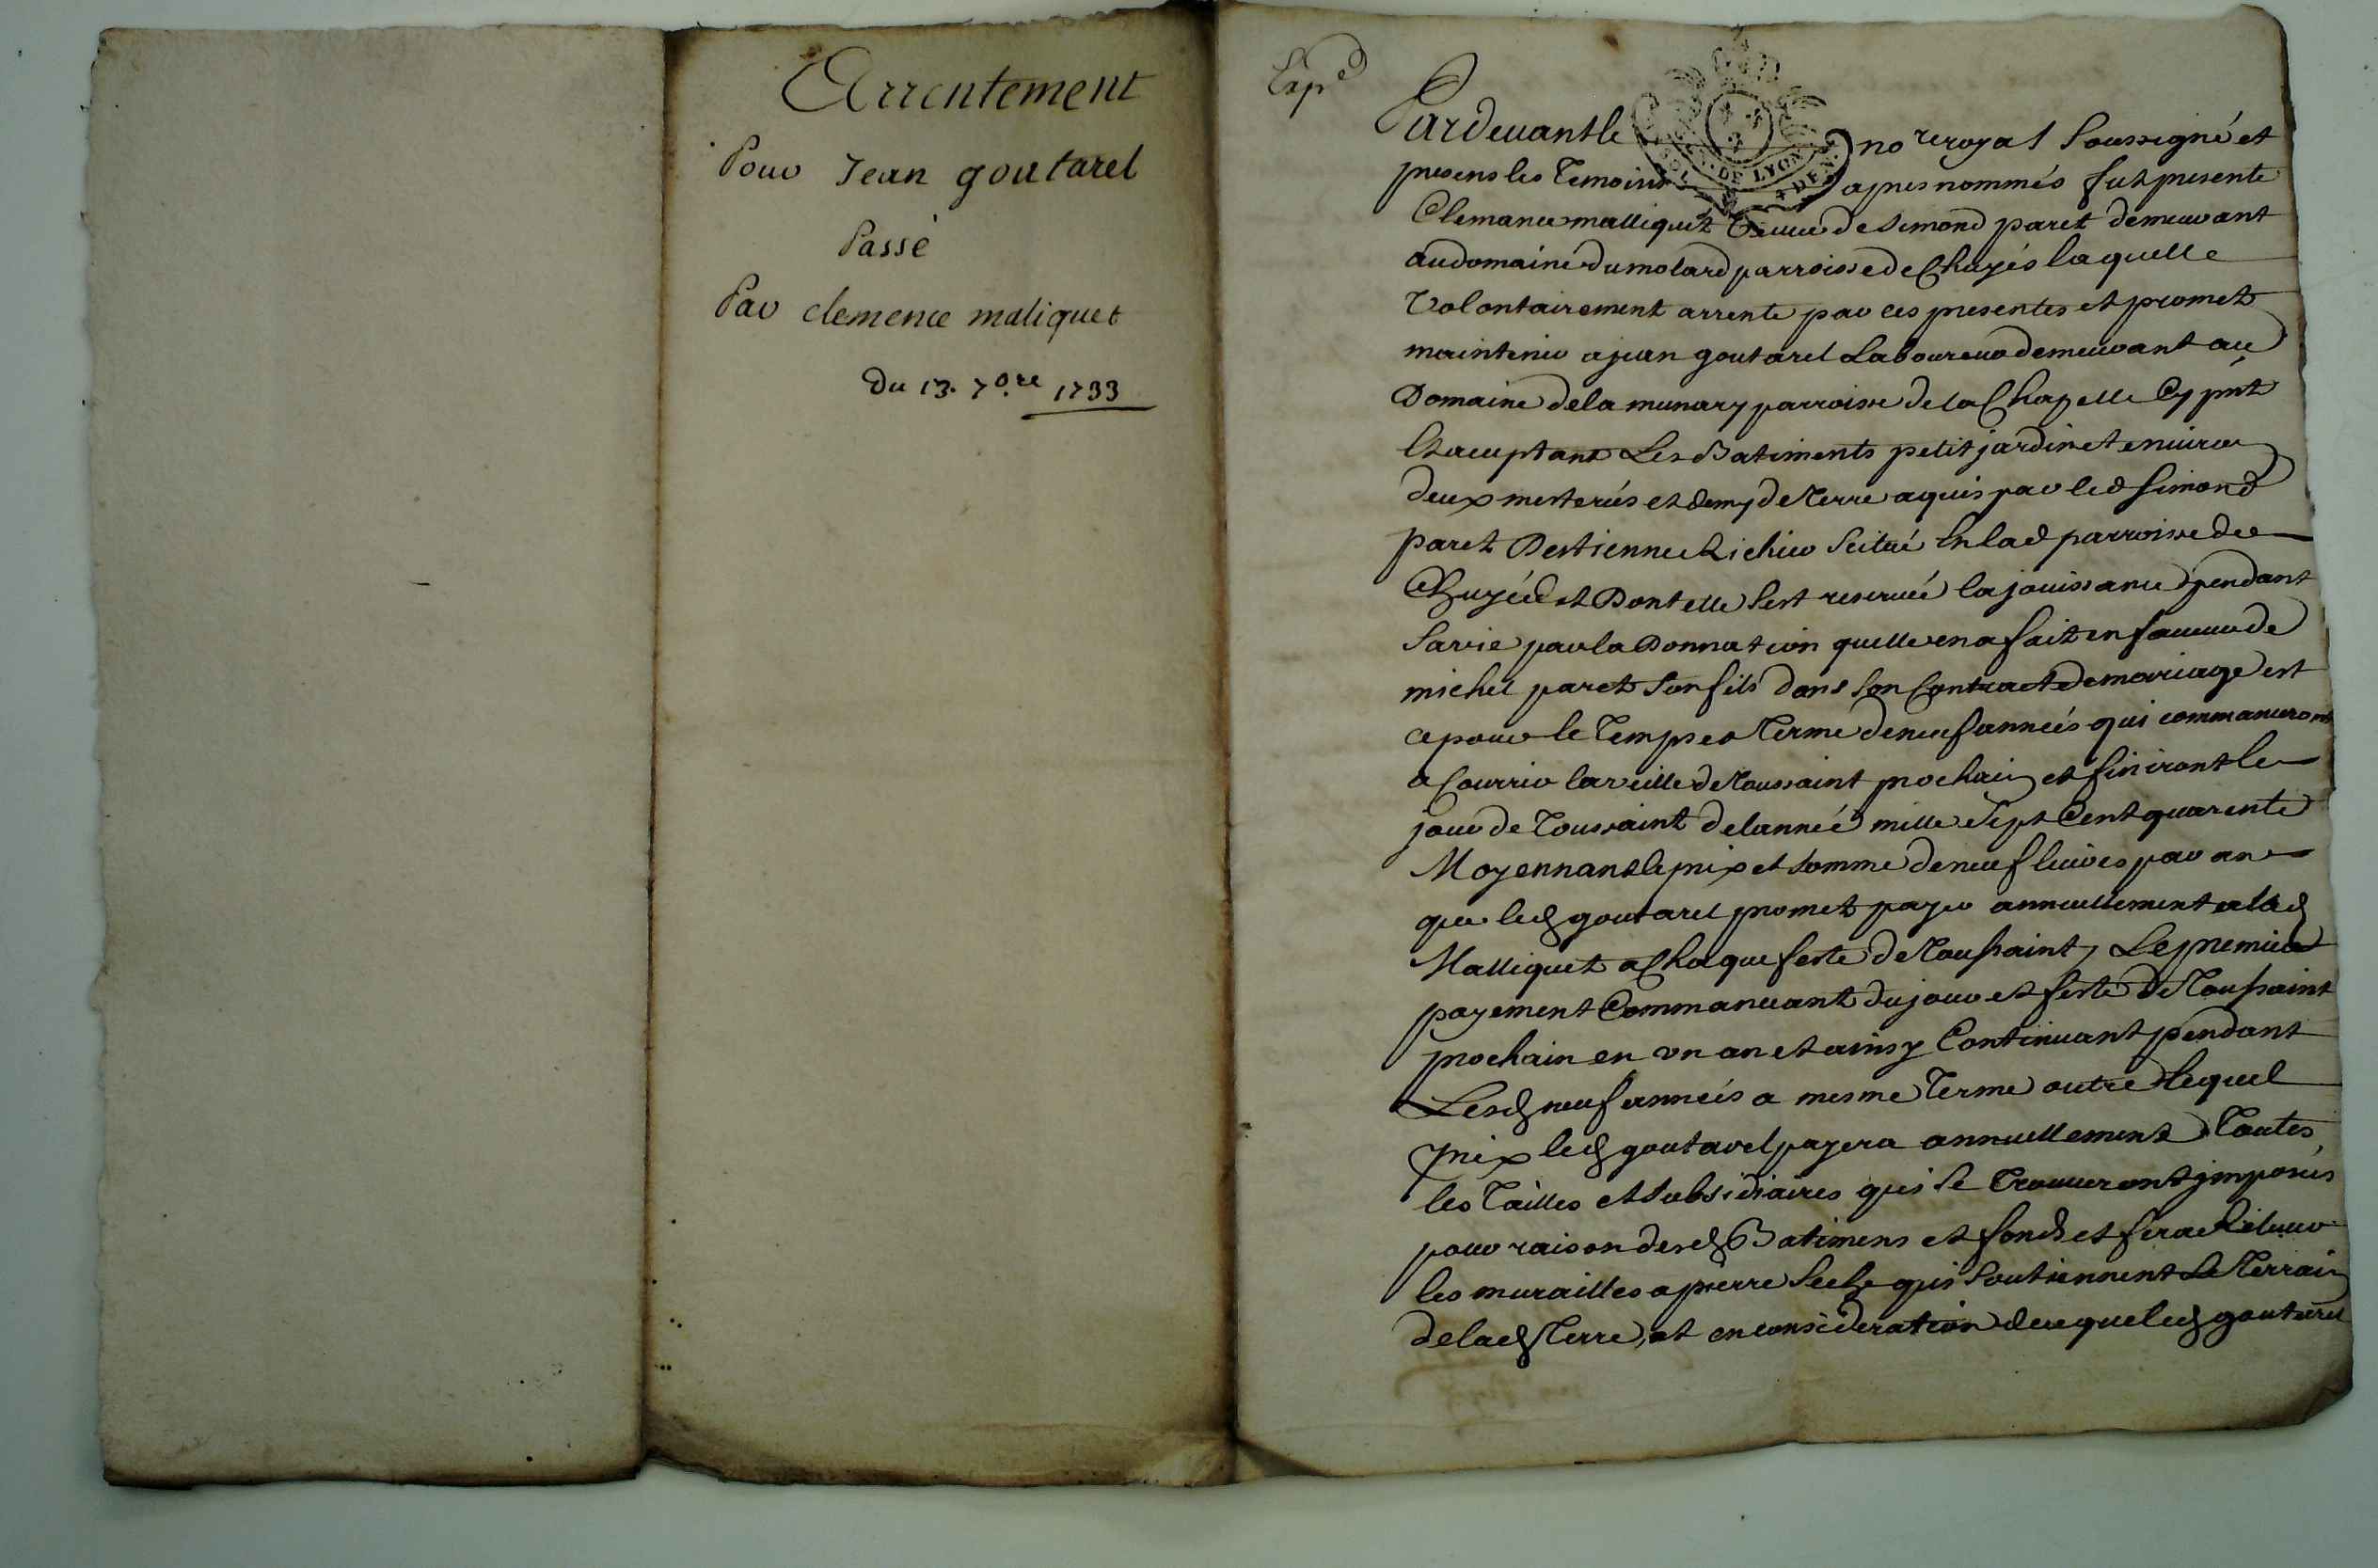 Arrentement
Pour Jean goutarel
Passé
Par clemence maliquet
Du 13. 7bre 1733
Exp^d
Pardeuant le no^re royal soussigné et
presens les temoins apres nommés fut presente
Clemance malliquet veuue de simond paret demeurant
au domaine du molard parroisse de Chuyés laquelle
volontairement arrente par ces presentes et promet
maintenir a jean goutarel Laboureur demeurant au
Domaine de la munary parroisse de la Chapelle Cy pnt
et aceuptant Les Batiments petit jardin et enuiron
deux mesterés et demy de terre aquis par led simond
paret D'estienne Richier scitué en lad parroisse de
Chuyés et Dont elle s'est reseruée la jouissance pendant
sa vie par la Donnation quelle en a fait en faueur de
michel paret son fils dans son Contract de mariage est
ce pour le temps et terme de neuf années qui commanceront
a Courrir la veille de toussaint prochain et finiront le
jour de toussaint de l'année mille sept Cent quarente
Moyennant le prix et somme de neuf liures par an
que led goutarel promet payer annuellement a lad
Malliquet a Chaque feste de toussaint, Le premier
payement Commancant du jour et feste de toussaint
prochain en vn an et ainsy Continuant pendant
Lesd neuf années a mesme terme outre lequel
prix led goutarel payera annuellement toutes
les tailles et subsidiaires qui se trouueront jmposés
pour raison desd Batimens et fonds et fera
les murailles a pierre seche qui soutiennent Le terrain
de lad terre, et en consideration de ce que led goutarel
DE LYON